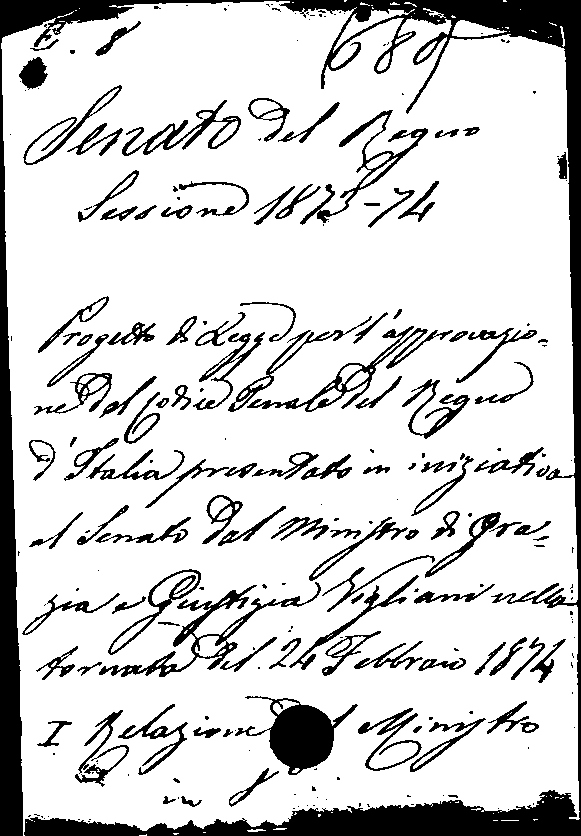 E. 8
680
Senato del Regno
Sessione 1873-74
Progetto di Legge per l'approvazio-
ne del Codice Penale del Regno
d'Italia presentato in iniziativa
al Senato dal Ministro di Gra-
zia e Giustizia Vigliani nella
tornata del 24 Febbraio 1874
I Relazione Ministro
in 8°.